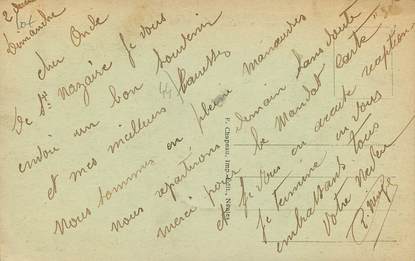 Dimanche
cher Oncle
de St Nazaire je vous
envoi un bon souvenir
et mes meilleurs
Nous sommes en pleine manœuvres
nous repartirons demain sans doute
merci pour le Mandat carte
et je vous en accuse reception
je termine en vous
embrassant tous
votre neveu
F. Chapeau, Imp.-Édit., Nantes